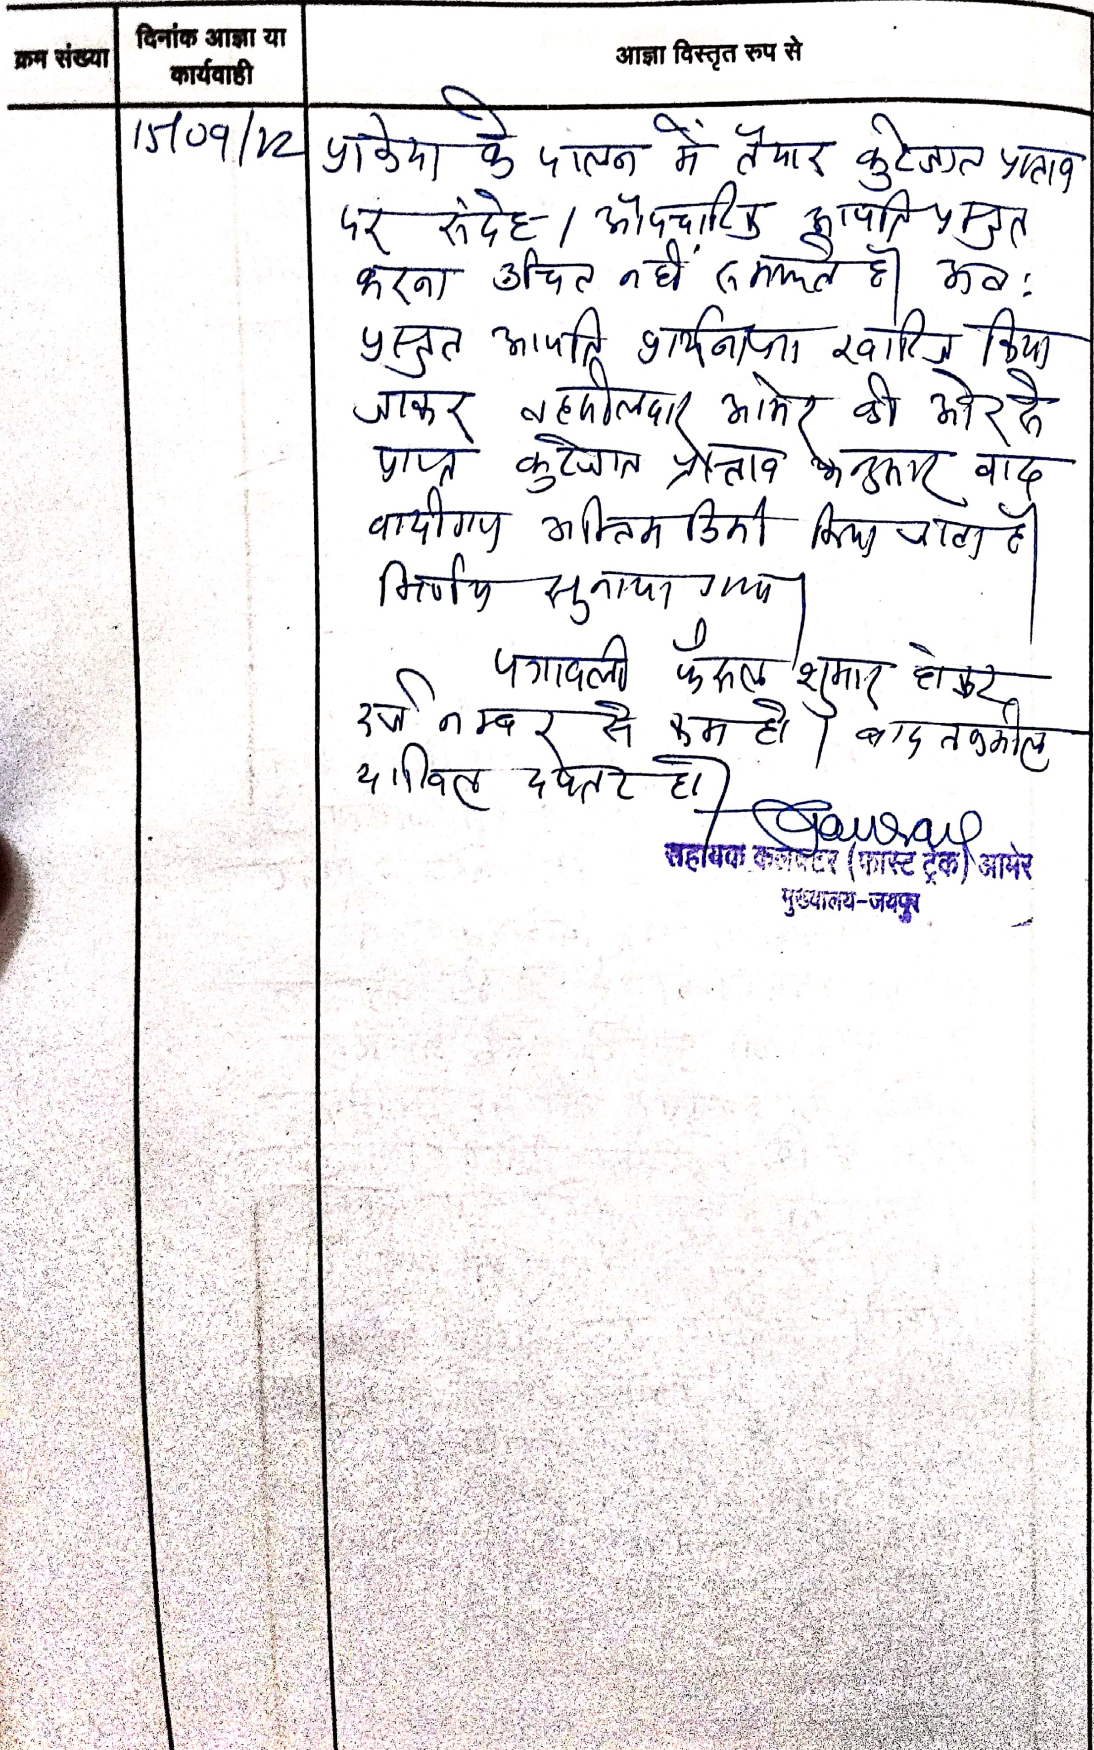 क्रम संख्या
दिनांक आज्ञा या
कार्यवाही
आज्ञा विस्तृत रुप से
15/09/12
प्रक्रिया के पालन में तैयार कुर्रेजात प्रस्ताव
पर संदेह / औपचारिक आपत्ति प्रस्तुत
करना उचित नहीं समझते है। अतः
प्रस्तुत आपत्ति प्रार्थनापत्र खारिज किया
जाकर तहसीलदार आमेर की ओर से
प्राप्त कुर्रेजात प्रस्ताव अनुसार वाद
वादीगण अन्तिम डिक्री किया जाता है।
निर्णय सुनाया गया।
पत्रावली फैसल शुमार होकर
दर्ज नम्बर से कम हो। बाद तकमील
दाखिल दफ्तर हो।
सहायक कलेक्टर (फास्ट ट्रेक) आमेर
मुख्यालय-जयपुर